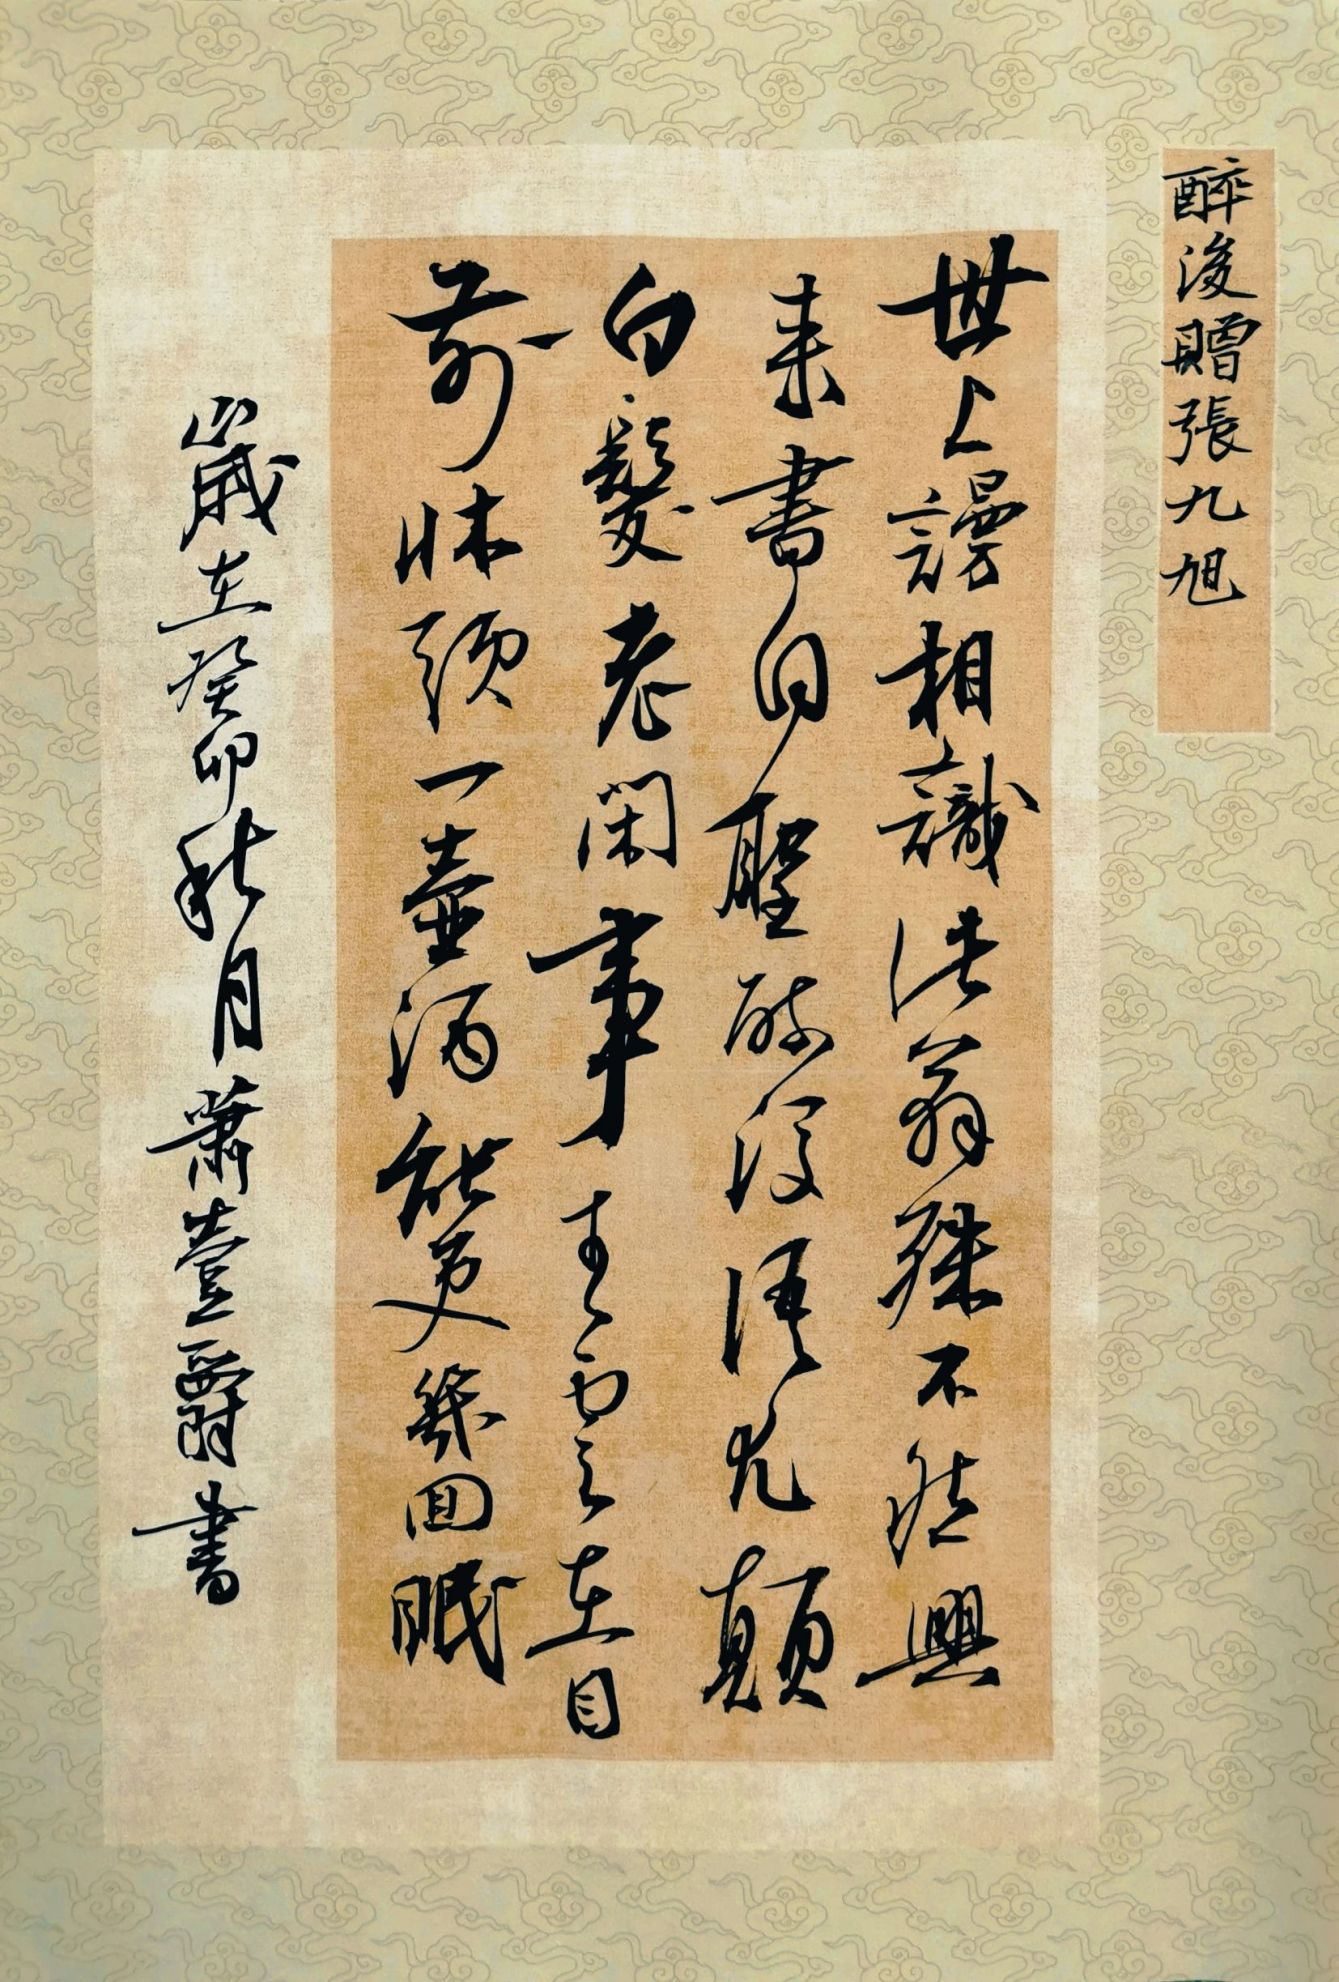 醉後贈張九旭
世上謾相識此翁殊不然興
來書自聖醉後語尤顛
白髮老閑事青雲在目
前牀頭一壺酒能更幾回眠
歲在癸卯秋月蕭壹爵書